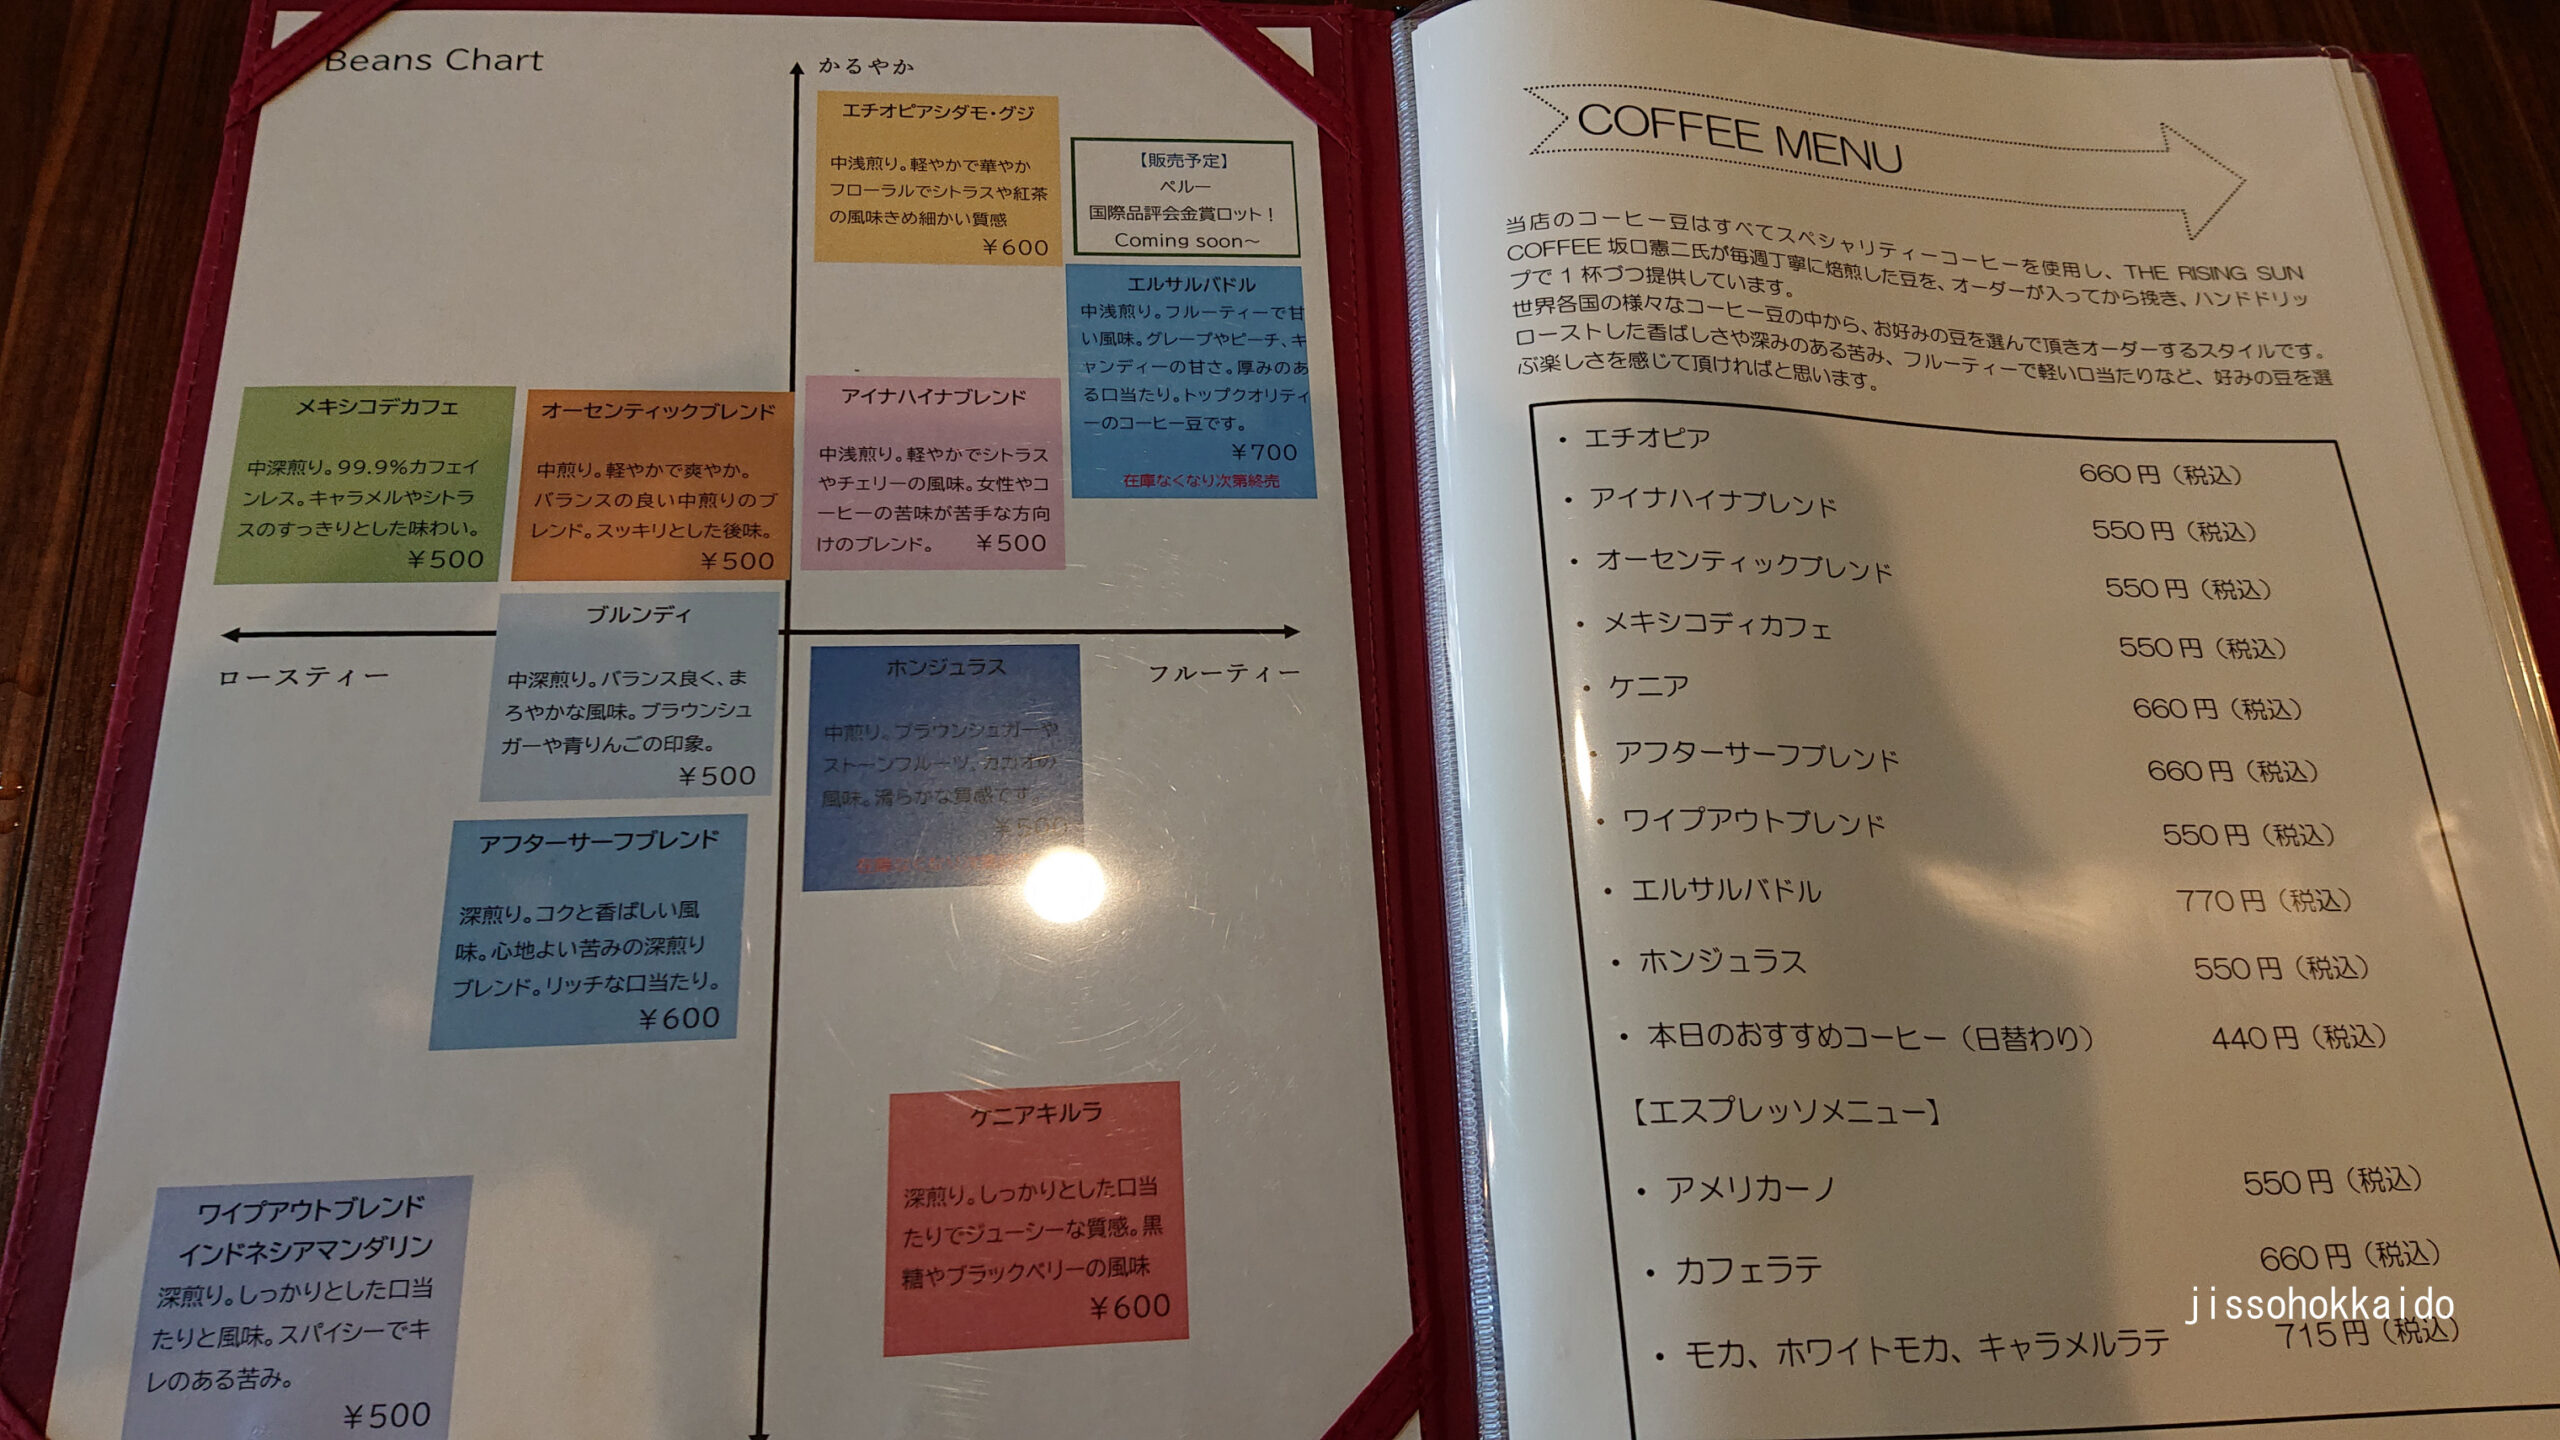 Beans Chart
かるやか
エチオピアシダモ・グジ
中浅煎り。軽やかで華やか
フローラルでシトラスや紅茶
の風味きめ細かい質感
￥600
【販売予定】
ペルー
国際品評会金賞ロット！
Coming soon～
エルサルバドル
中浅煎り。フルーティーで甘
い風味。グレープやピーチ、キ
ャンディーの甘さ。厚みのあ
る口当たり。トップクオリティ
ーのコーヒー豆です。
￥700
在庫なくなり次第終売
メキシコデカフェ
中深煎り。99.9%カフェイ
ンレス。キャラメルやシトラ
スのすっきりとした味わい。
￥500
オーセンティックブレンド
中煎り。軽やかで爽やか。
バランスの良い中煎りのブ
レンド。スッキリとした後味。
￥500
アイナハイナブレンド
中浅煎り。軽やかでシトラス
やチェリーの風味。女性やコ
ーヒーの苦味が苦手な方向
けのブレンド。 ￥500
ロースティー
フルーティー
ブルンディ
中深煎り。バランス良く、ま
ろやかな風味。ブラウンシュ
ガーや青りんごの印象。
￥500
ホンジュラス
中煎り。ブラウンシュガーや
ストーンフルーツ、カカオの
風味。滑らかな質感です。
￥500
アフターサーフブレンド
深煎り。コクと香ばしい風
味。心地よい苦みの深煎り
ブレンド。リッチな口当たり。
￥600
ケニアキルラ
深煎り。しっかりとした口当
たりでジューシーな質感。黒
糖やブラックベリーの風味
￥600
ワイプアウトブレンド
インドネシアマンダリン
深煎り。しっかりとした口当
たりと風味。スパイシーでキ
レのある苦み。
￥500
COFFEE MENU
当店のコーヒー豆はすべてスペシャリティーコーヒーを使用し、THE RISING SUN
COFFEE 坂口憲二氏が毎週丁寧に焙煎した豆を、オーダーが入ってから挽き、ハンドドリッ
プで1杯づつ提供しています。
世界各国の様々なコーヒー豆の中から、お好みの豆を選んで頂きオーダーするスタイルです。
ローストした香ばしさや深みのある苦み、フルーティーで軽い口当たりなど、好みの豆を選
ぶ楽しさを感じて頂ければと思います。
・エチオピア 660円（税込）
・アイナハイナブレンド 550円（税込）
・オーセンティックブレンド 550円（税込）
・メキシコディカフェ 550円（税込）
・ケニア 660円（税込）
・アフターサーフブレンド 660円（税込）
・ワイプアウトブレンド 550円（税込）
・エルサルバドル 770円（税込）
・ホンジュラス 550円（税込）
・本日のおすすめコーヒー（日替わり） 440円（税込）
【エスプレッソメニュー】
・アメリカーノ 550円（税込）
・カフェラテ 660円（税込）
・モカ、ホワイトモカ、キャラメルラテ 715円（税込）
jissohokkaido